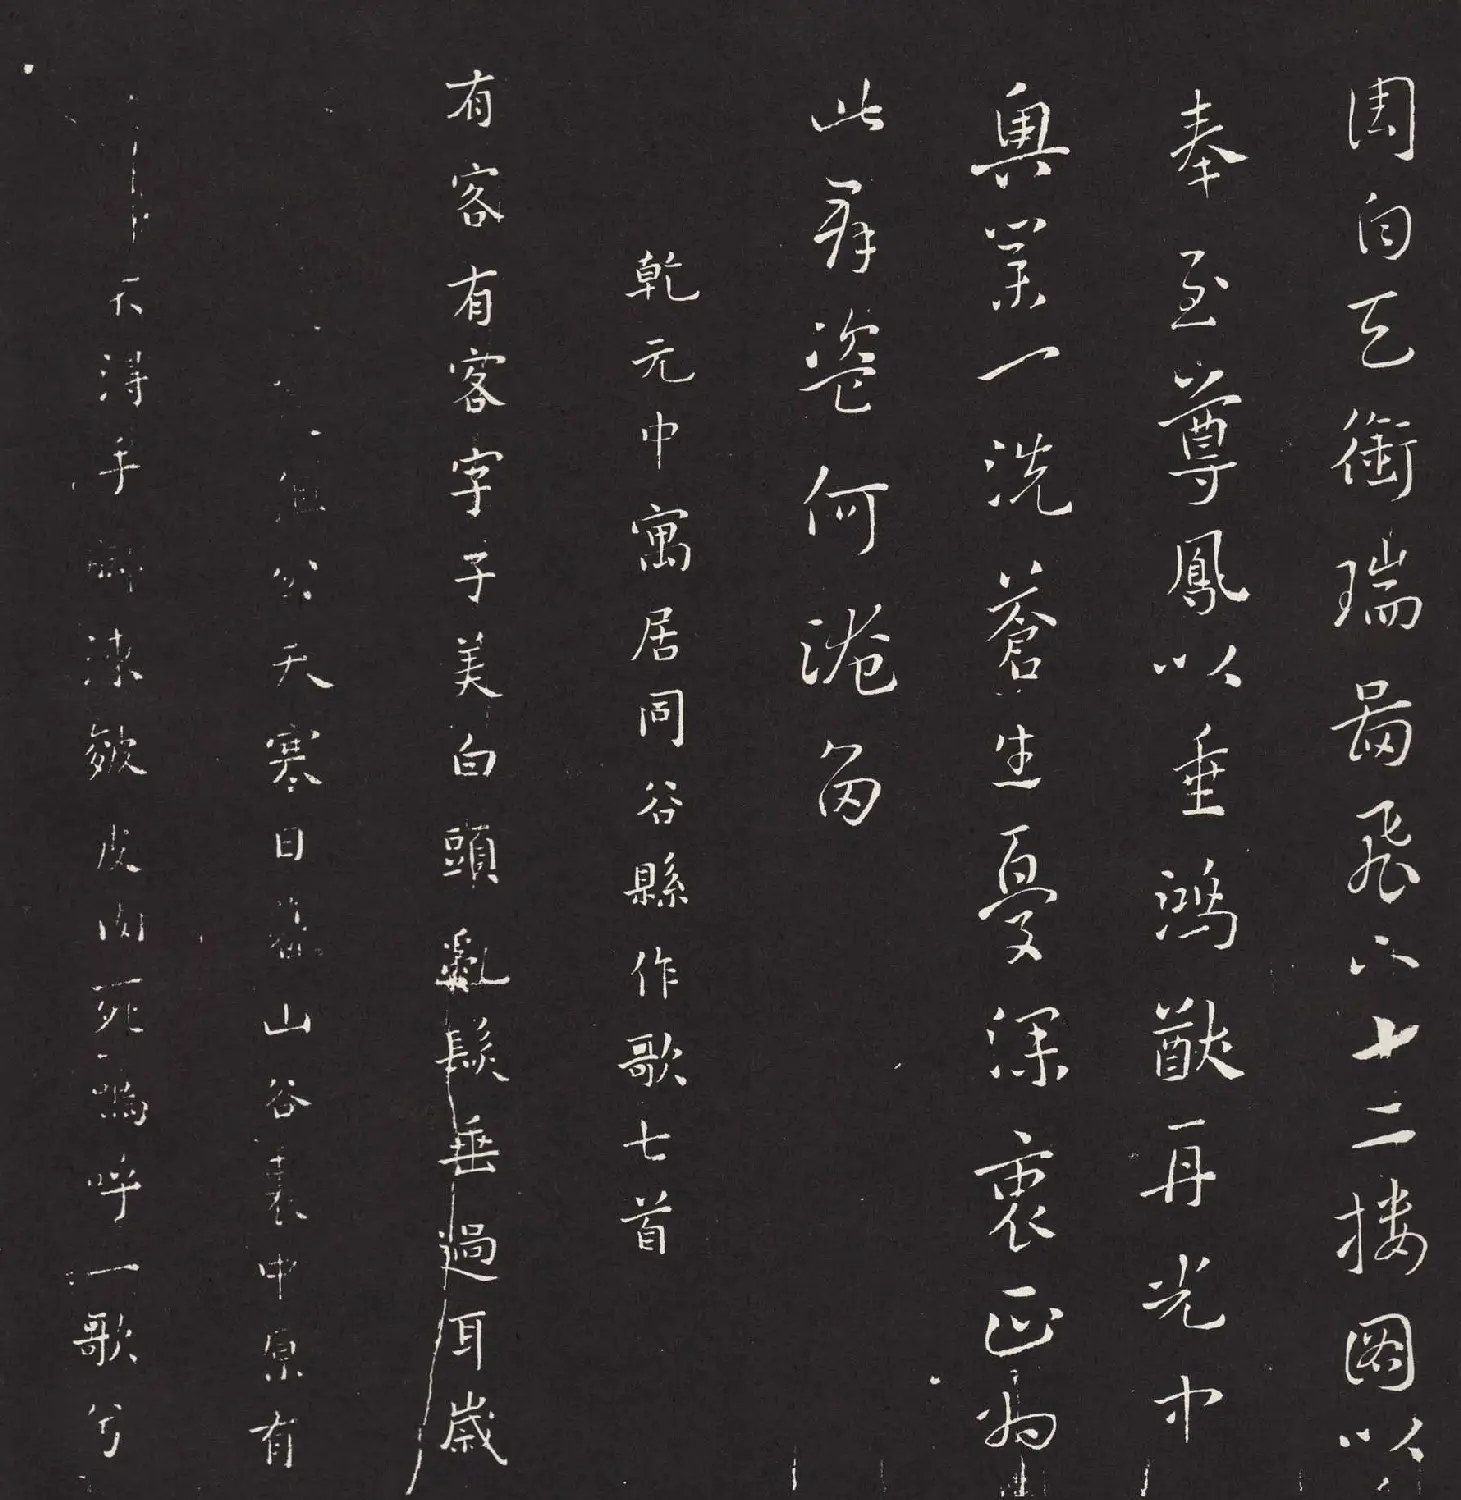 周自天銜瑞圖飛下十二樓圖以
奉至尊鳳以垂鴻猷再光中
興業一洗蒼生憂深衷正為
此群盜何淹留
乾元中寓居同谷縣作歌七首
有客有客字子美白頭亂髮垂過耳歲
狙公天寒日暮山谷裏中原有
不得手腳凍皴皮肉死嗚呼一歌兮